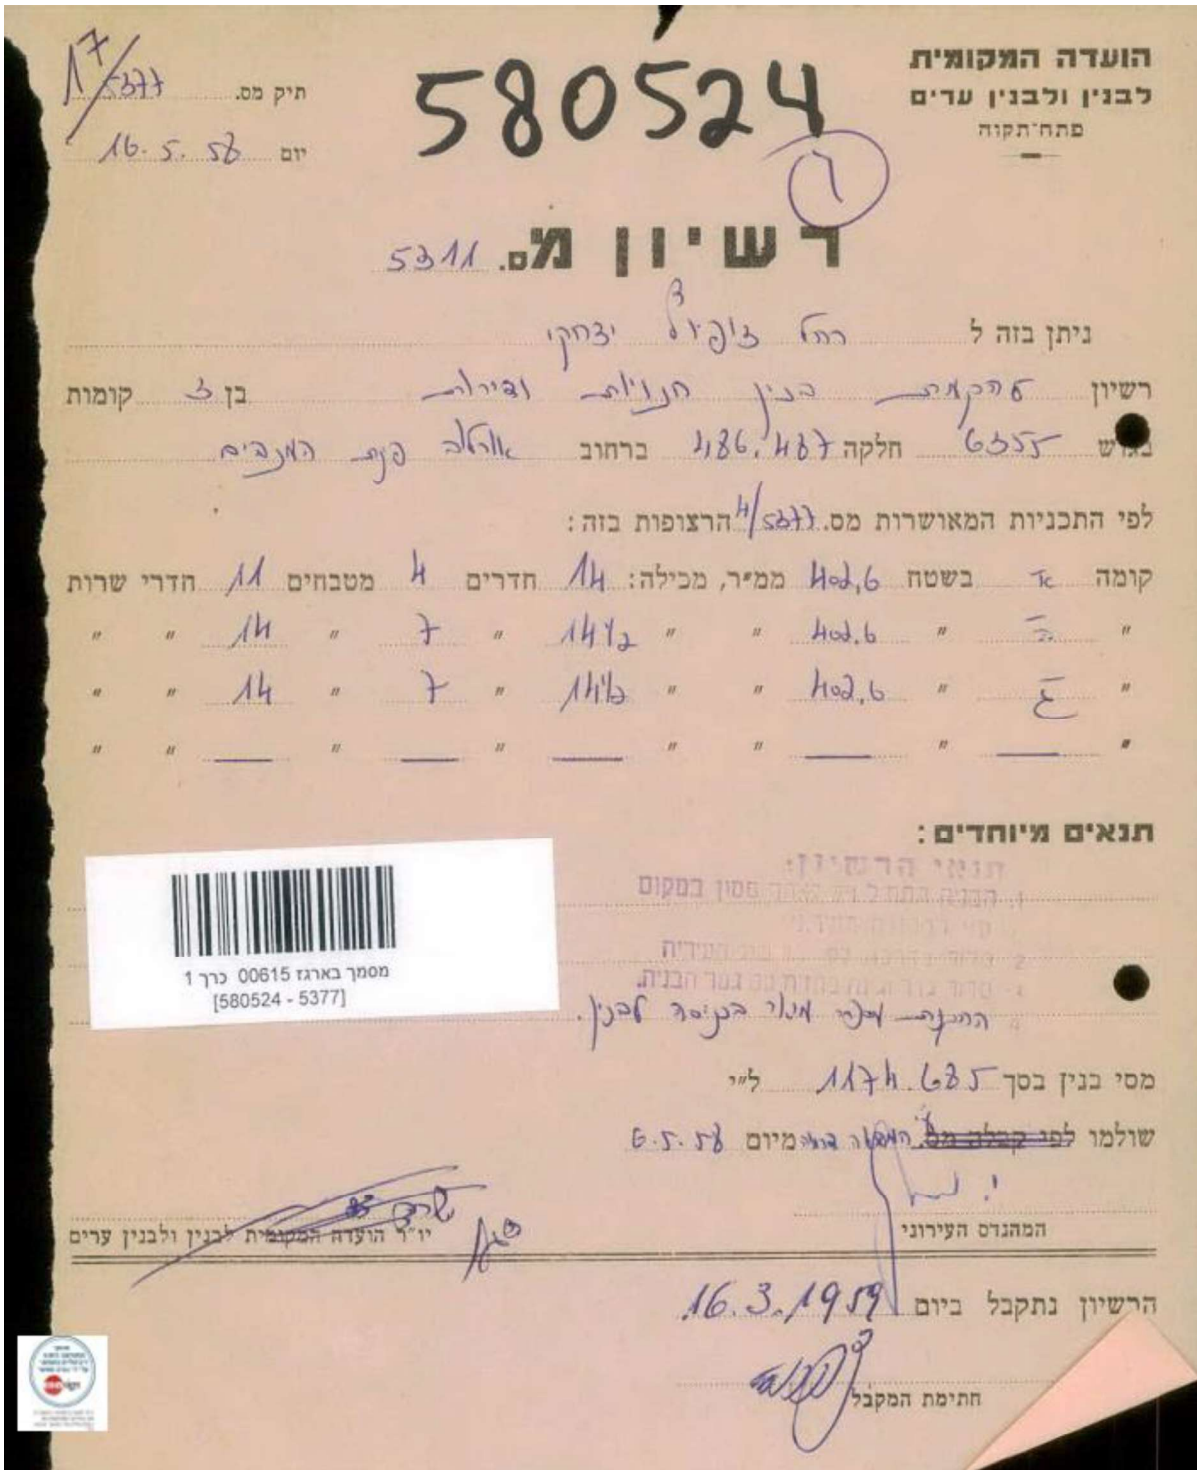 הועדה המקומית
לבנין ולבנין ערים
פתח־תקוה
580524
17/5377 תיק מס.
יום 16.5.58
רשיון מס. 5311
ניתן בזה ל רחל יצחקי
רשיון להקמת בנין חנויות ודירות בן 3 קומות
בגוש 6355 חלקה 486,487 ברחוב פנת המגינים
לפי התכניות המאושרות מס. 4/5377 הרצופות בזה:
קומה א בשטח 402,6 ממ״ר, מכילה: 14 חדרים 4 מטבחים 11 חדרי שרות
״ ב ״ 402,6 ״ ״ 14½ ״ 7 ״ 14 ״ ״
״ ג ״ 402,6 ״ ״ 14½ ״ 7 ״ 14 ״ ״
״ — ״ — ״ ״ — ״ — ״ — ״ ״
תנאים מיוחדים:
תנאי הרשיון:
במקום
העירית
גמר הבנית.
התקנת בכניסה לבנין.
מסמך בארגז 00615 כרך 1
[580524 - 5377]
מסי בנין בסך 1174.685 ל״י
שולמו לפי קבלה מס. מיום 6.5.58
המהנדס העירוני
יו״ר הועדה המקומית לבנין ולבנין ערים
הרשיון נתקבל ביום 16.3.1959
חתימת המקבל